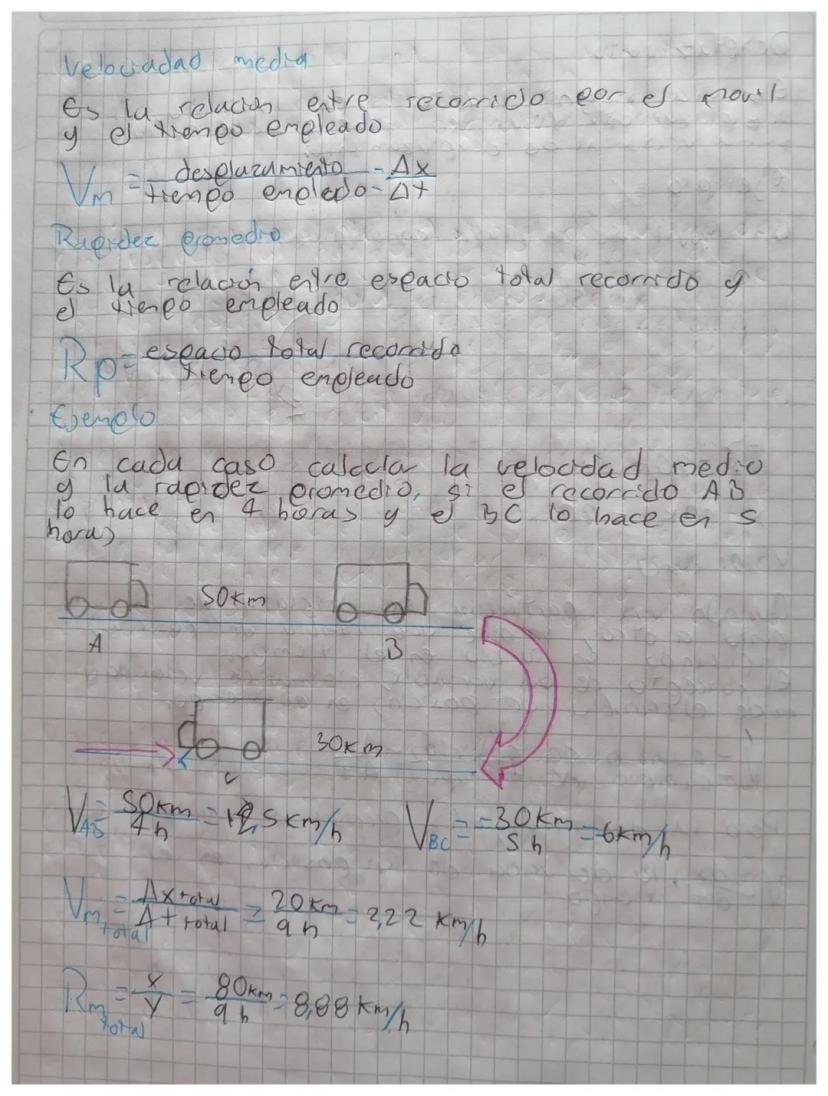 Velociadad media
Es la relacion entre recorrido por el movil
y el tiempo empleado
Vm = desplazamiento / tiempo empledo = Δx / Δt
Rapidez promedio
Es la relación entre espacio total recorrido y
el tiempo empleado
Rp = espacio total recorrido / tiempo empleado
Ejemplo
En cada caso calcula la velocidad medio
y la rapidez promedio, si el recorrido AB
lo hace en 4 horas y el BC lo hace en 5
horas
50km
A B
30km
C
VAB = 50km / 4h = 12,5 km/h VBC = -30km / 5h = -6km/h
Vm total = Δx total / Δt total = 20km / 9h = 2,22 km/h
Rm total = x / y = 80km / 9h = 8,88 km/h